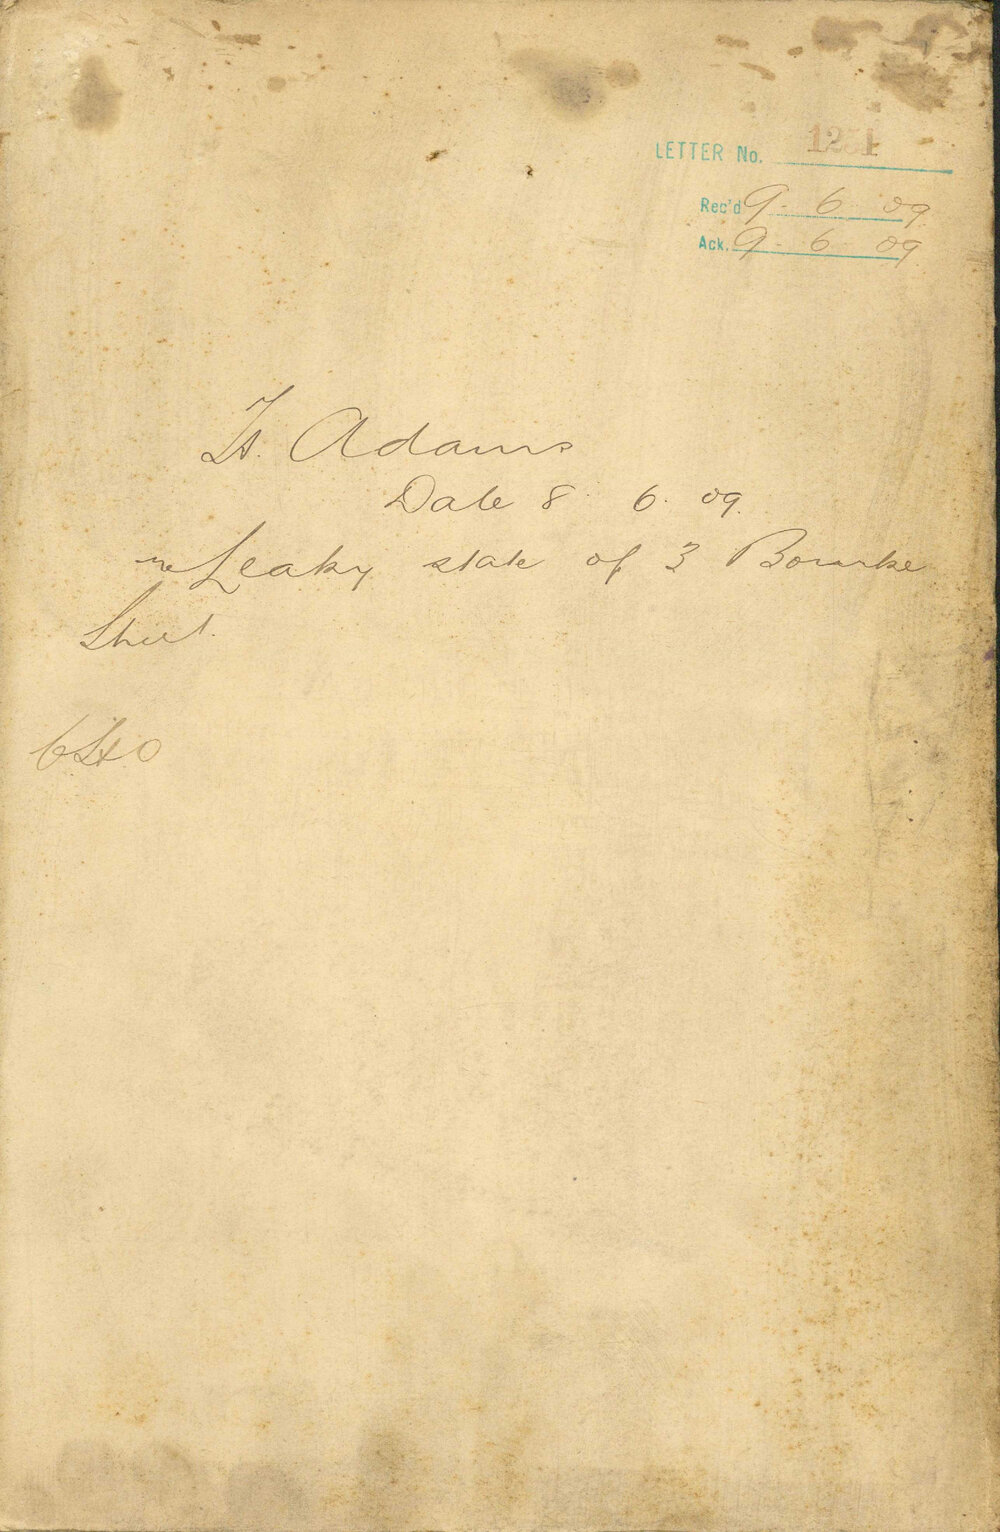 LETTER No. 1231
Rec'd 9. 6. 09
Ack. 9. 6. 09
H. Adams
Date 8. 6. 09.
re Leaky state of 3 Bourke
Street.